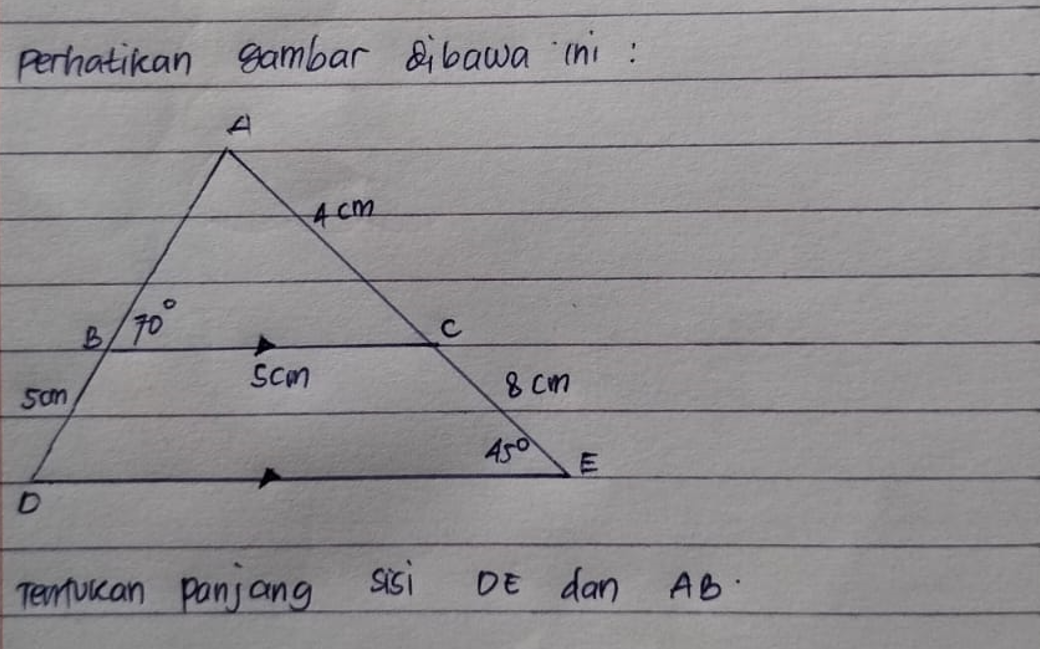 Perhatikan gambar dibawa ini :
A
4 cm
B 70° C
5cm
5cm
8 cm
45° E
D
Tentukan panjang sisi DE dan AB.